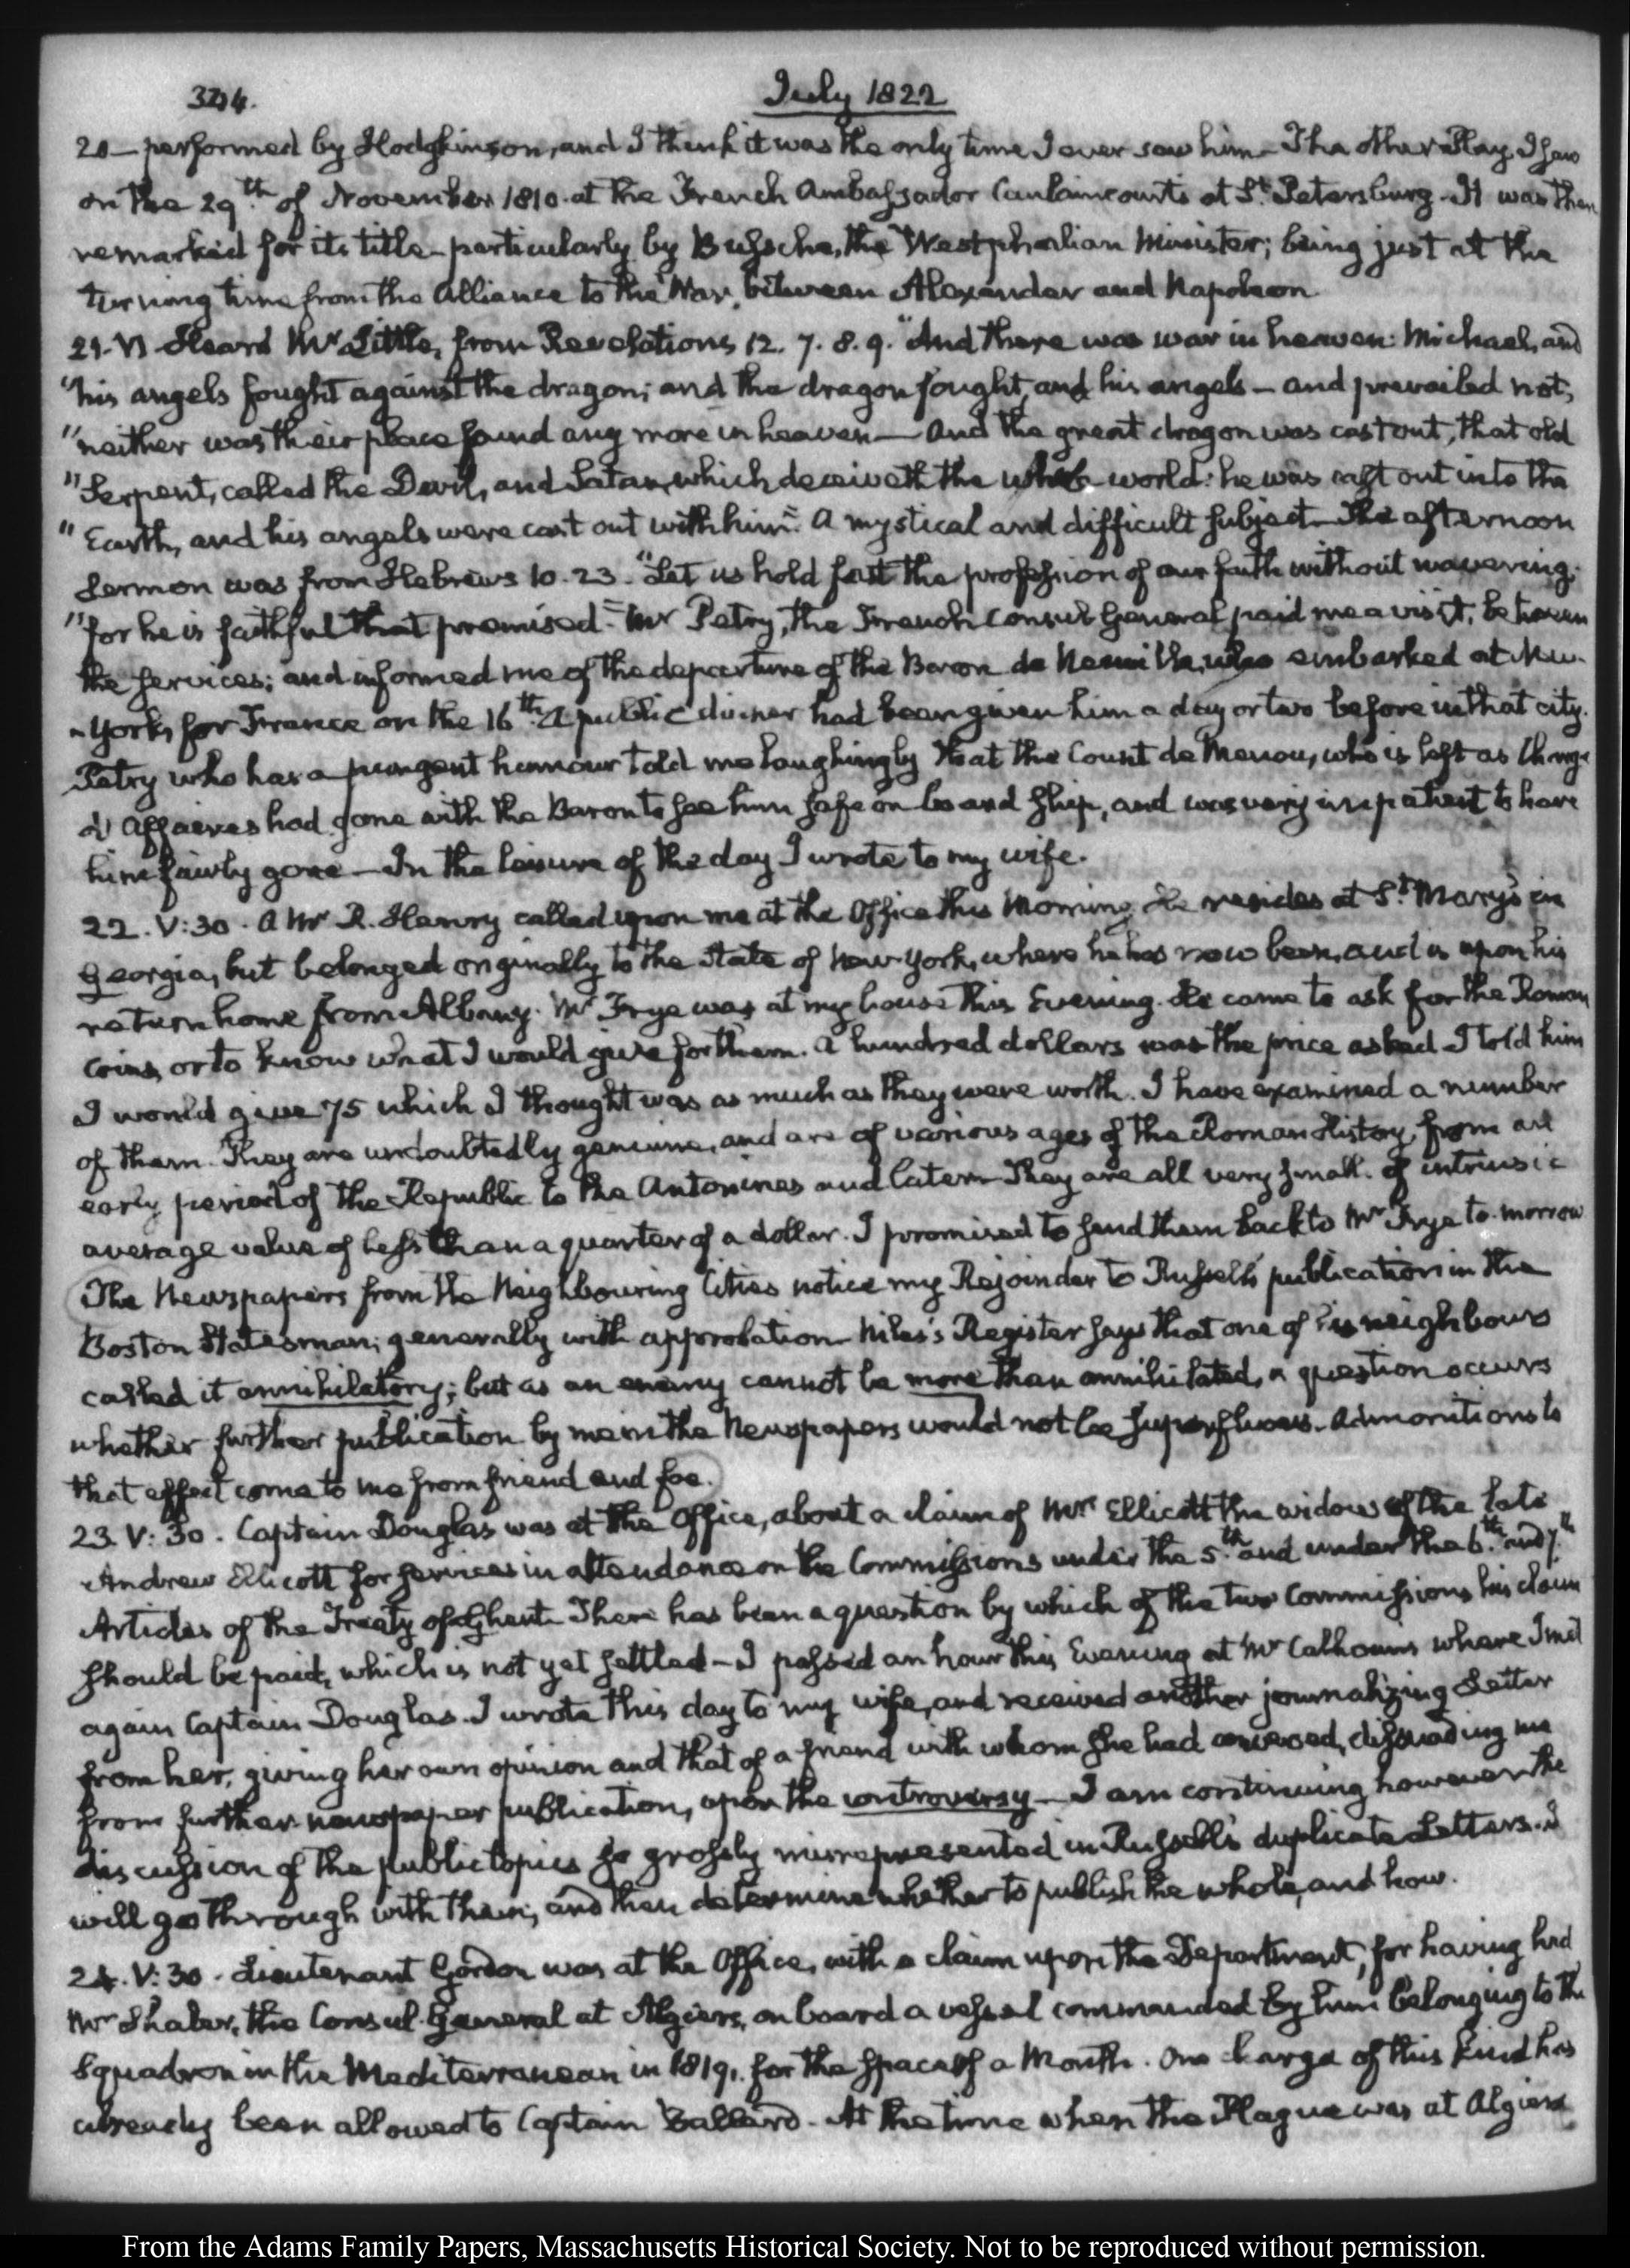 July 1822
20 — performed by Hodgkinson, and I think it was the only time I ever saw him — The other Play I saw
on the 29th. of November 1810. at the French Ambassador Caulaincourt's at St. Petersburg. It was then
remarked for its title — particularly by Bussche, the Westphalian Minister; being just at the
turning time from the Alliance to the War, between Alexander and Napoleon.
21. VI. Heard Mr. Little, from Revelations 12. 7. 8. 9. "And there was war in heaven: Michael, and
"his angels fought against the dragon; and the dragon fought, and his angels — and prevailed not;
"neither was their place found any more in heaven — And the great dragon was cast out, that old
"Serpent, called the Devil, and Satan, which deceiveth the whole world: he was cast out into the
"Earth, and his angels were cast out with him." A mystical and difficult subject — The afternoon
Sermon was from Hebrews 10. 23. "Let us hold fast the profession of our faith without wavering;
"for he is faithful that promised." Mr Petry, the French Consul General paid me a visit, between
the services; and informed me of the departure of the Baron de Neuville, who embarked at New-
-York, for France on the 16th. A public dinner had been given him a day or two before in that city.
Petry who has a pungent humour told me laughingly that the Count de Menou, who is left as Chargé
d'Affaires had gone with the Baron to see him safe on board ship, and was very impatient to have
him fairly gone — In the leisure of the day I wrote to my wife.
22. V:30. A Mr R. Henry called upon me at the Office this Morning. He resides at St. Mary's in
Georgia, but belonged originally to the State of New-York, where he has now been, and is upon his
return home from Albany. Mr Frye was at my house this Evening. He came to ask for the Roman
Coins, or to know what I would give for them. A hundred dollars was the price asked. I told him
I would give 75 which I thought was as much as they were worth. I have examined a number
of them. They are undoubtedly genuine, and are of various ages of the Roman History, from an
early period of the Republic to the Antonines and later — They are all very small. of intrinsic
average value of less than a quarter of a dollar. I promised to send them back to Mr Frye to-morrow
The Newspapers from the Neighbouring Cities notice my Rejoinder to Russell's publication in the
Boston Statesman; generally with approbation — Niles's Register says that one of his neighbours
called it annihilatory; but as an enemy cannot be more than annihilated, a question occurs
whether further publication by me in the Newspapers would not be superfluous. Admonitions to
that effect come to me from friend and foe.
23. V:30. Captain Douglas was at the Office, about a claim of Mrs Ellicott the widow of the late
Andrew Ellicott for services in attendance on the Commissions under the 5th. and under the 6th. and 7th
Articles of the Treaty of Ghent. There has been a question by which of the two Commissions his claim
should be paid, which is not yet settled — I passed an hour this Evening at Mr Calhoun's where I met
again Captain Douglas. I wrote this day to my wife, and received another journalizing Letter
from her, giving her own opinion and that of a friend with whom she had conversed, dissuading me
from further newspaper publication, upon the controversy — I am continuing however the
discussion of the public topics so grossly misrepresented in Russell's duplicate Letters. I
will go through with them, and then determine whether to publish the whole, and how.
24. V:30. Lieutenant Gordon was at the Office, with a claim upon the Department, for having had
Mr Shaler, the Consul General at Algiers, on board a vessel commanded by him belonging to the
Squadron in the Mediterranean in 1819, for the space of a Month. One charge of this kind has
already been allowed to Captain Ballard. At the time when the Plague was at Algiers
From the Adams Family Papers, Massachusetts Historical Society. Not to be reproduced without permission.